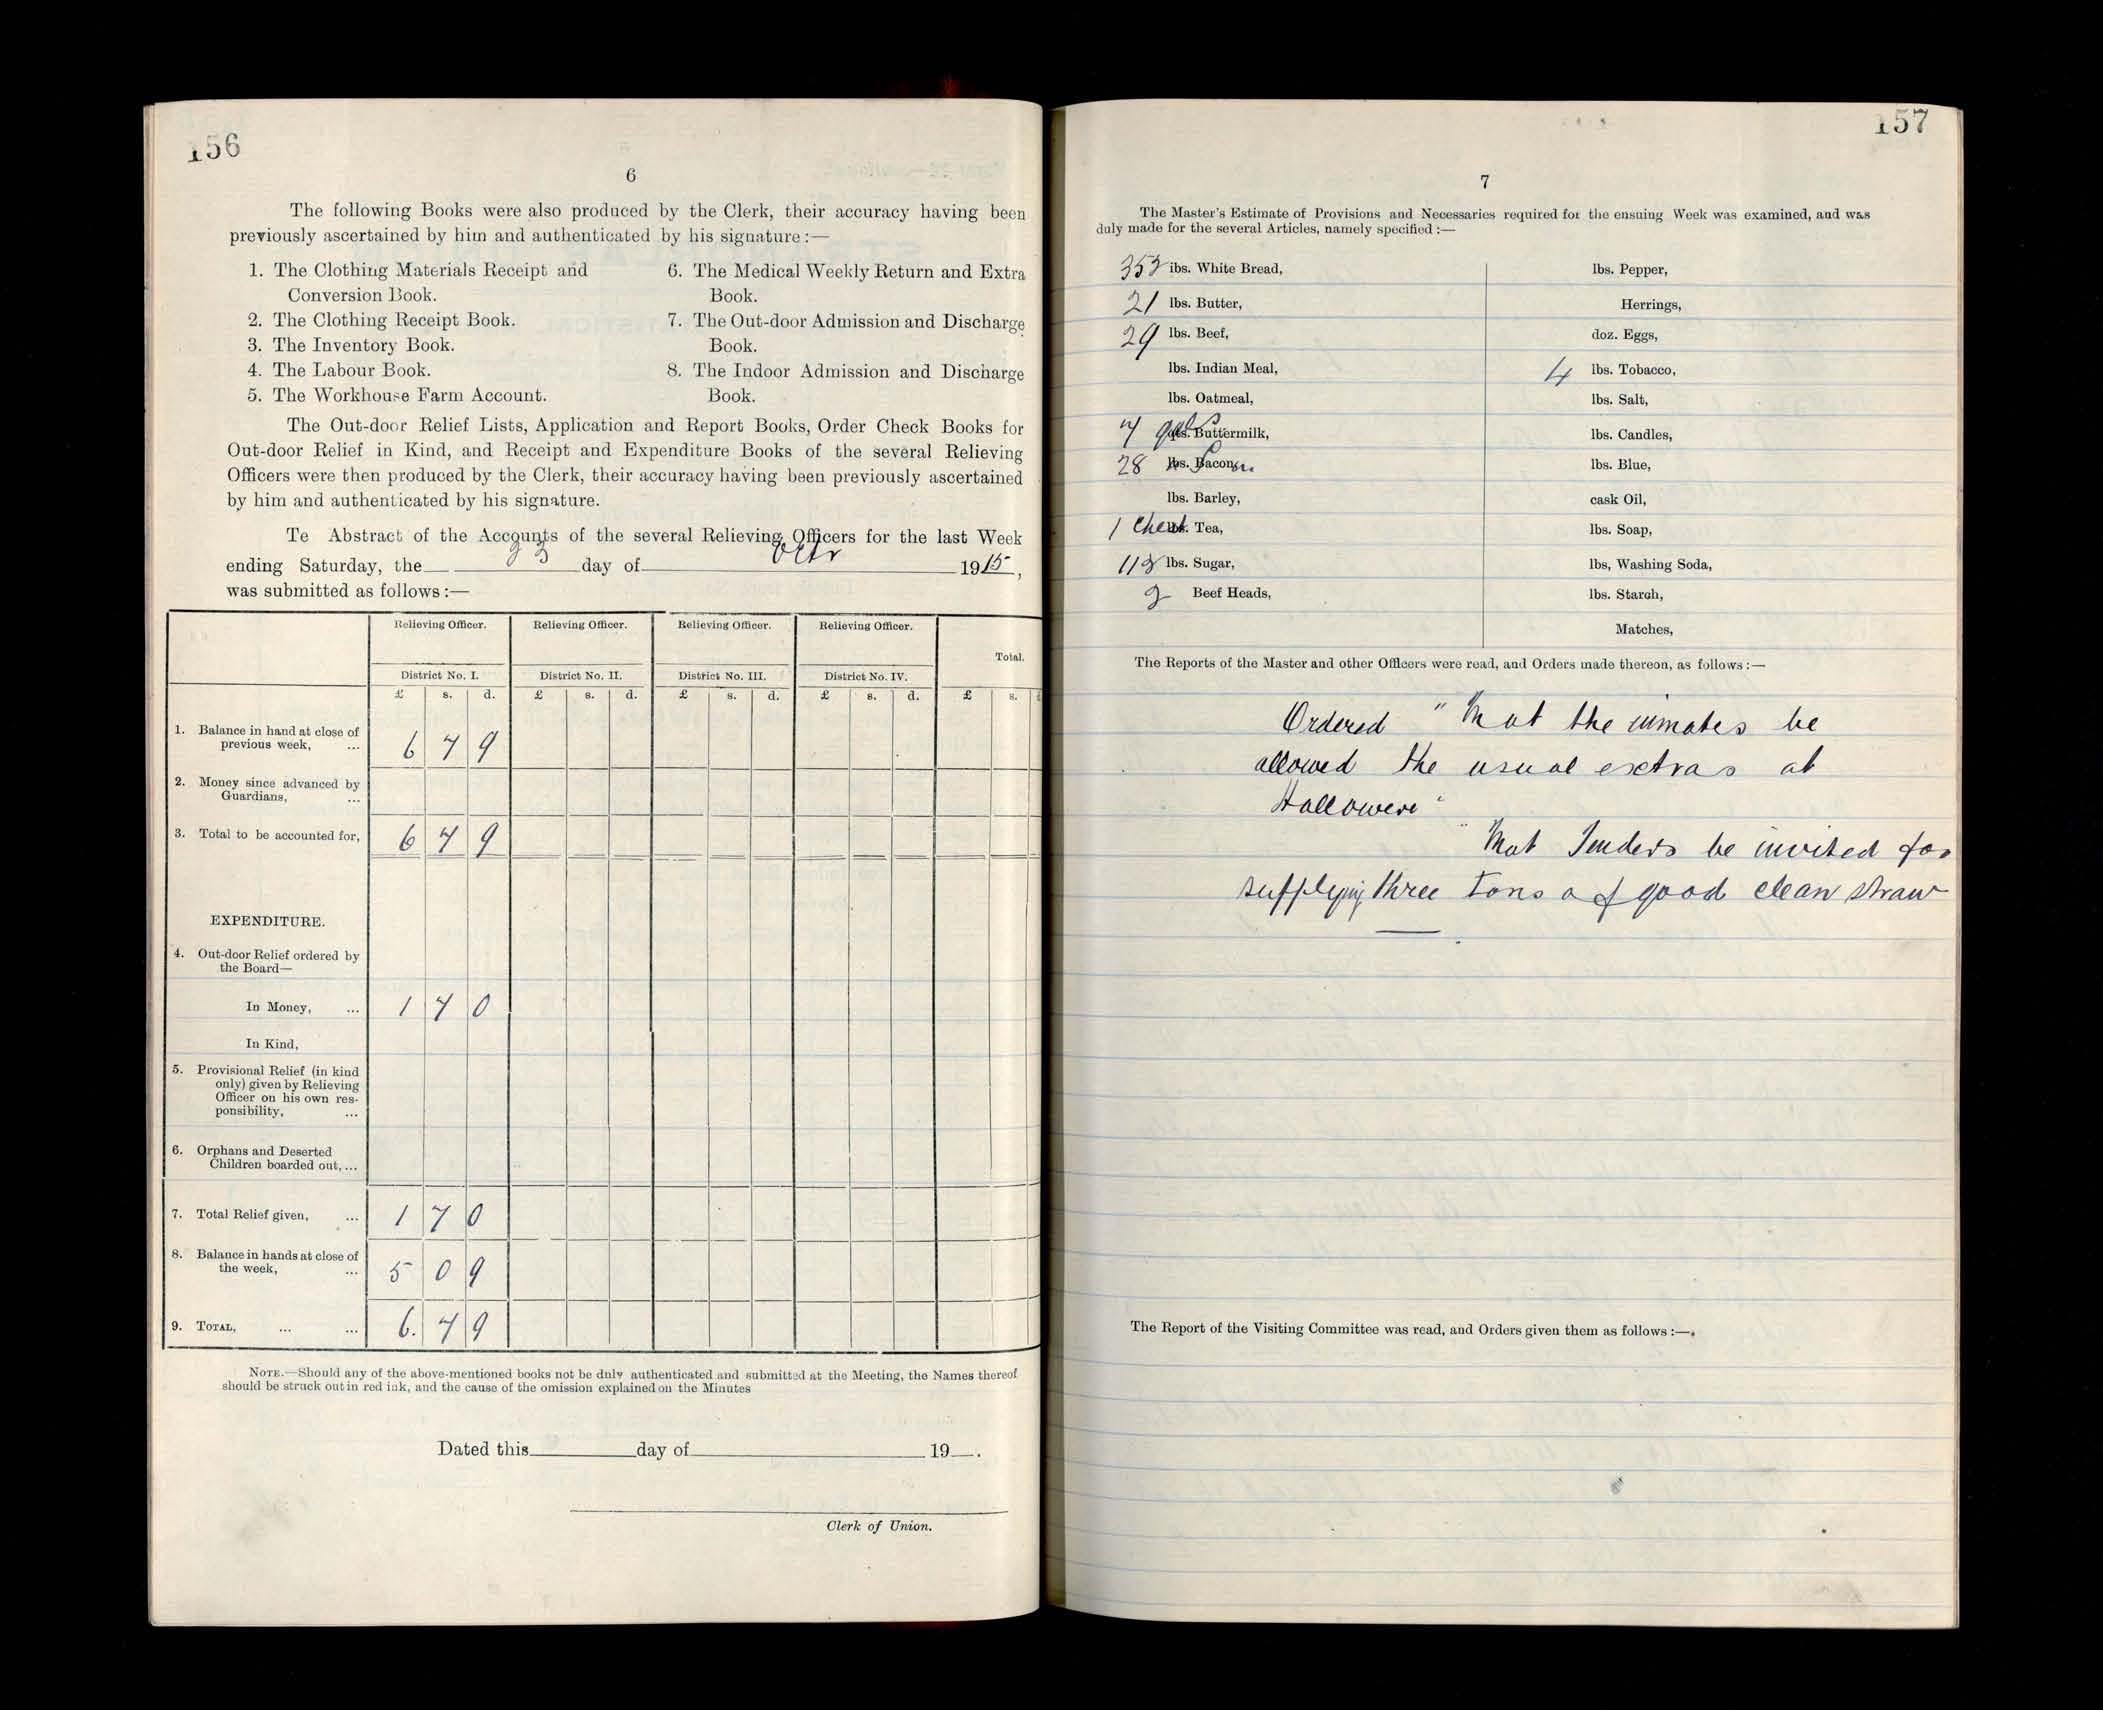 156
6
The following Books were also produced by the Clerk, their accuracy having been
previously ascertained by him and authenticated by his signature:—
1. The Clothing Materials Receipt and
Conversion Book.
2. The Clothing Receipt Book.
3. The Inventory Book.
4. The Labour Book.
5. The Workhouse Farm Account.
6. The Medical Weekly Return and Extra
Book.
7. The Out-door Admission and Discharge
Book.
8. The Indoor Admission and Discharge
Book.
The Out-door Relief Lists, Application and Report Books, Order Check Books for
Out-door Relief in Kind, and Receipt and Expenditure Books of the several Relieving
Officers were then produced by the Clerk, their accuracy having been previously ascertained
by him and authenticated by his signature.
Te Abstract of the Accounts of the several Relieving Officers for the last Week
ending Saturday, the 23 day of Octr 1915,
was submitted as follows:—
Relieving Officer. Relieving Officer. Relieving Officer. Relieving Officer. Total.
District No. I. District No. II. District No. III. District No. IV.
£ s. d. £ s. d. £ s. d. £ s. d. £ s.
1. Balance in hand at close of
previous week, ... 6 7 9
2. Money since advanced by
Guardians, ...
3. Total to be accounted for, 6 7 9
EXPENDITURE.
4. Out-door Relief ordered by
the Board—
In Money, ... 1 7 0
In Kind,
5. Provisional Relief (in kind
only) given by Relieving
Officer on his own res-
ponsibility, ...
6. Orphans and Deserted
Children boarded out,...
7. Total Relief given, ... 1 7 0
8. Balance in hands at close of
the week, ... 5 0 9
9. TOTAL, ... ... 6. 7 9
NOTE.—Should any of the above-mentioned books not be duly authenticated and submitted at the Meeting, the Names thereof
should be struck out in red ink, and the cause of the omission explained on the Minutes
Dated this day of 19 .
Clerk of Union.
157
7
The Master's Estimate of Provisions and Necessaries required for the ensuing Week was examined, and was
duly made for the several Articles, namely specified:—
352 lbs. White Bread,
21 lbs. Butter,
29 lbs. Beef,
lbs. Indian Meal,
lbs. Oatmeal,
7 gals Buttermilk,
28 lbs. Bacon,
lbs. Barley,
1 Chest Tea,
112 lbs. Sugar,
2 Beef Heads,
lbs. Pepper,
Herrings,
doz. Eggs,
4 lbs. Tobacco,
lbs. Salt,
lbs. Candles,
lbs. Blue,
cask Oil,
lbs. Soap,
lbs, Washing Soda,
lbs. Starch,
Matches,
The Reports of the Master and other Officers were read, and Orders made thereon, as follows:—
Ordered "That the inmates be
allowed the usual extras at
Halloween"
"That Tenders be invited for
supplying three Tons of good clean straw
The Report of the Visiting Committee was read, and Orders given them as follows:—